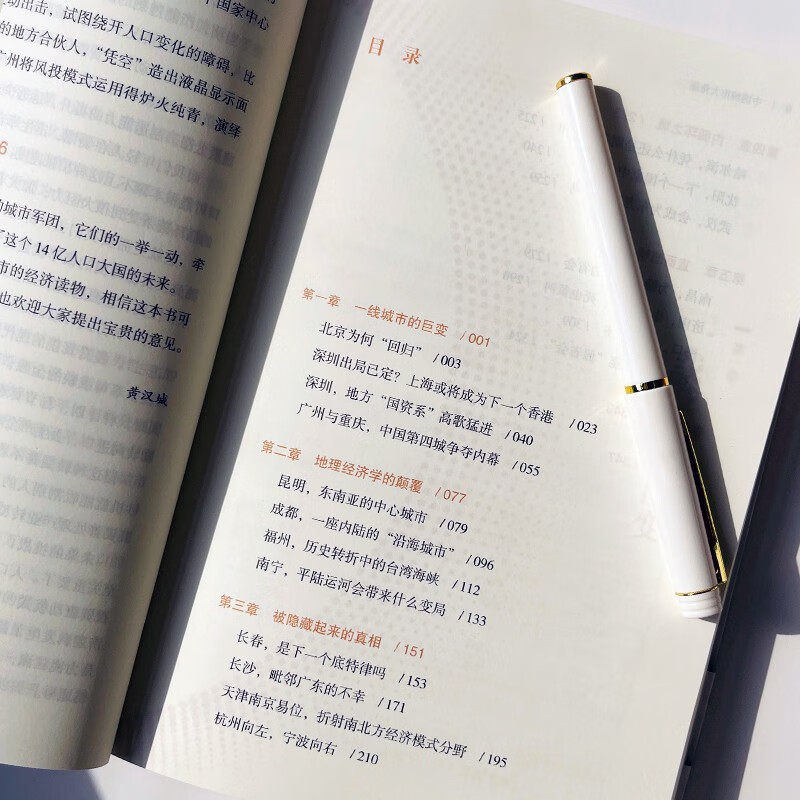 国家中心
动出击，试图绕开人口变化的障碍，比
的地方合伙人，“凭空”造出液晶显示面
广州将风投模式运用得炉火纯青，演绎
6
的城市军团，它们的一举一动，牵
了这个14亿人口大国的未来。
市的经济读物，相信这本书可
也欢迎大家提出宝贵的意见。
黄汉城
目录
第一章 一线城市的巨变 /001
北京为何“回归” /003
深圳出局已定？上海或将成为下一个香港 /023
深圳，地方“国资系”高歌猛进 /040
广州与重庆，中国第四城争夺内幕 /055
第二章 地理经济学的颠覆 /077
昆明，东南亚的中心城市 /079
成都，一座内陆的“沿海城市” /096
福州，历史转折中的台湾海峡 /112
南宁，平陆运河会带来什么变局 /133
第三章 被隐藏起来的真相 /151
长春，是下一个底特律吗 /153
长沙，毗邻广东的不幸 /171
天津南京易位，折射南北方经济模式分野 /195
杭州向左，宁波向右 /210